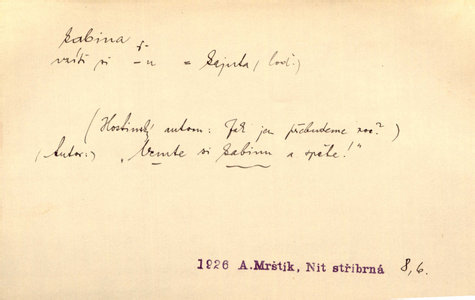 kabina
vzíti si – u = kajuta (loď.)
(Hostinský autom: Jak jen přebudeme noc?)
(Autor:) „Vemte si kabinu a spěte!"
1926 A.Mrštík, Nit stříbrná 8,6.